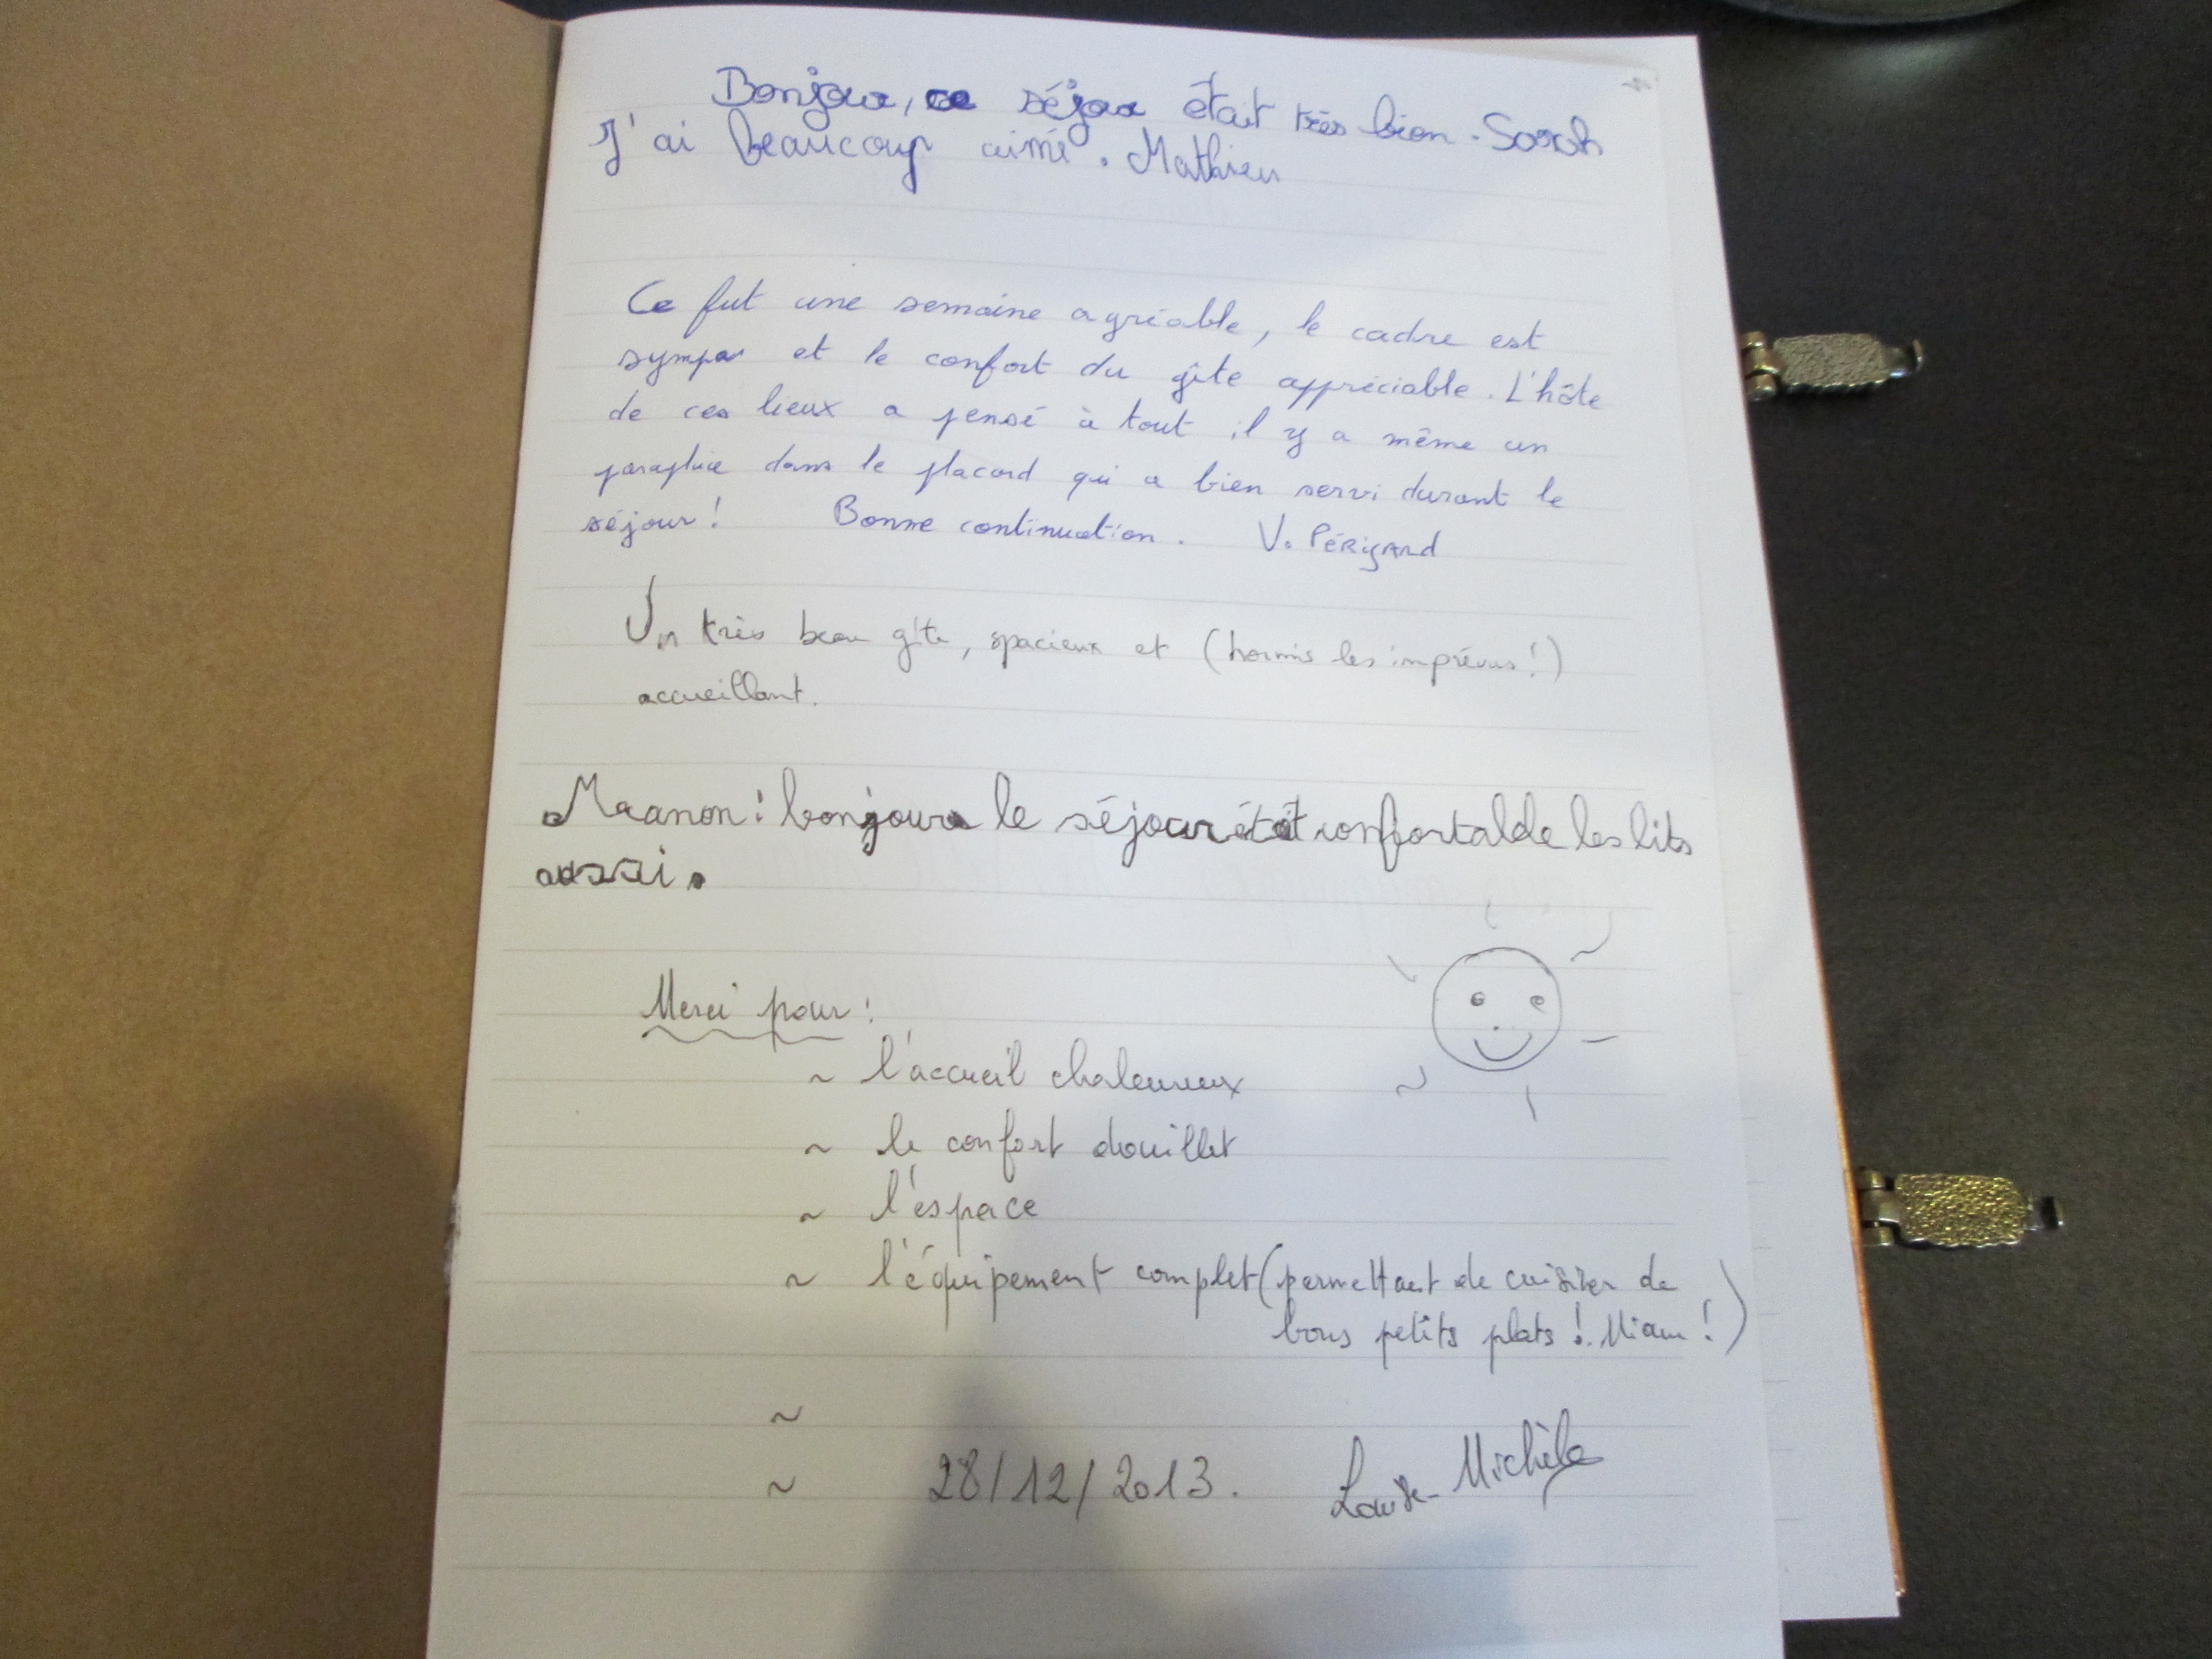 Bonjour, ce séjour était très bien. Sarah
J'ai beaucoup aimé. Mathieu
Ce fut une semaine agréable, le cadre est
sympa et le confort du gîte appréciable. L'hôte
de ces lieux a pensé à tout il y a même un
parapluie dans le placard qui a bien servi durant le
séjour! Bonne continuation. V.
Un très beau gîte, spacieux et (hormis les imprévus!)
accueillant.
Maanon: bonjour le séjour était confortalde les lits
aussi.
Merci pour:
~ l'accueil chaleureux
~ le confort douillet
~ l'espace
~ l'équipement complet (permettant de cuisiner de
bons petits plats! Miam!)
~
~ 28/12/2013. Louise-Michèle